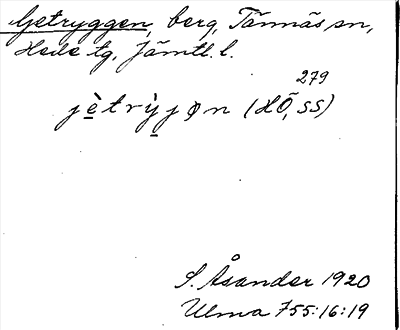 Getryggen, berg, Tännäs sn,
Hede tg, Jämtl. l.
279
jè̱trỳ̱jøn (HÖ, SS)
S. Åsander 1920
Ulma 755:16:19